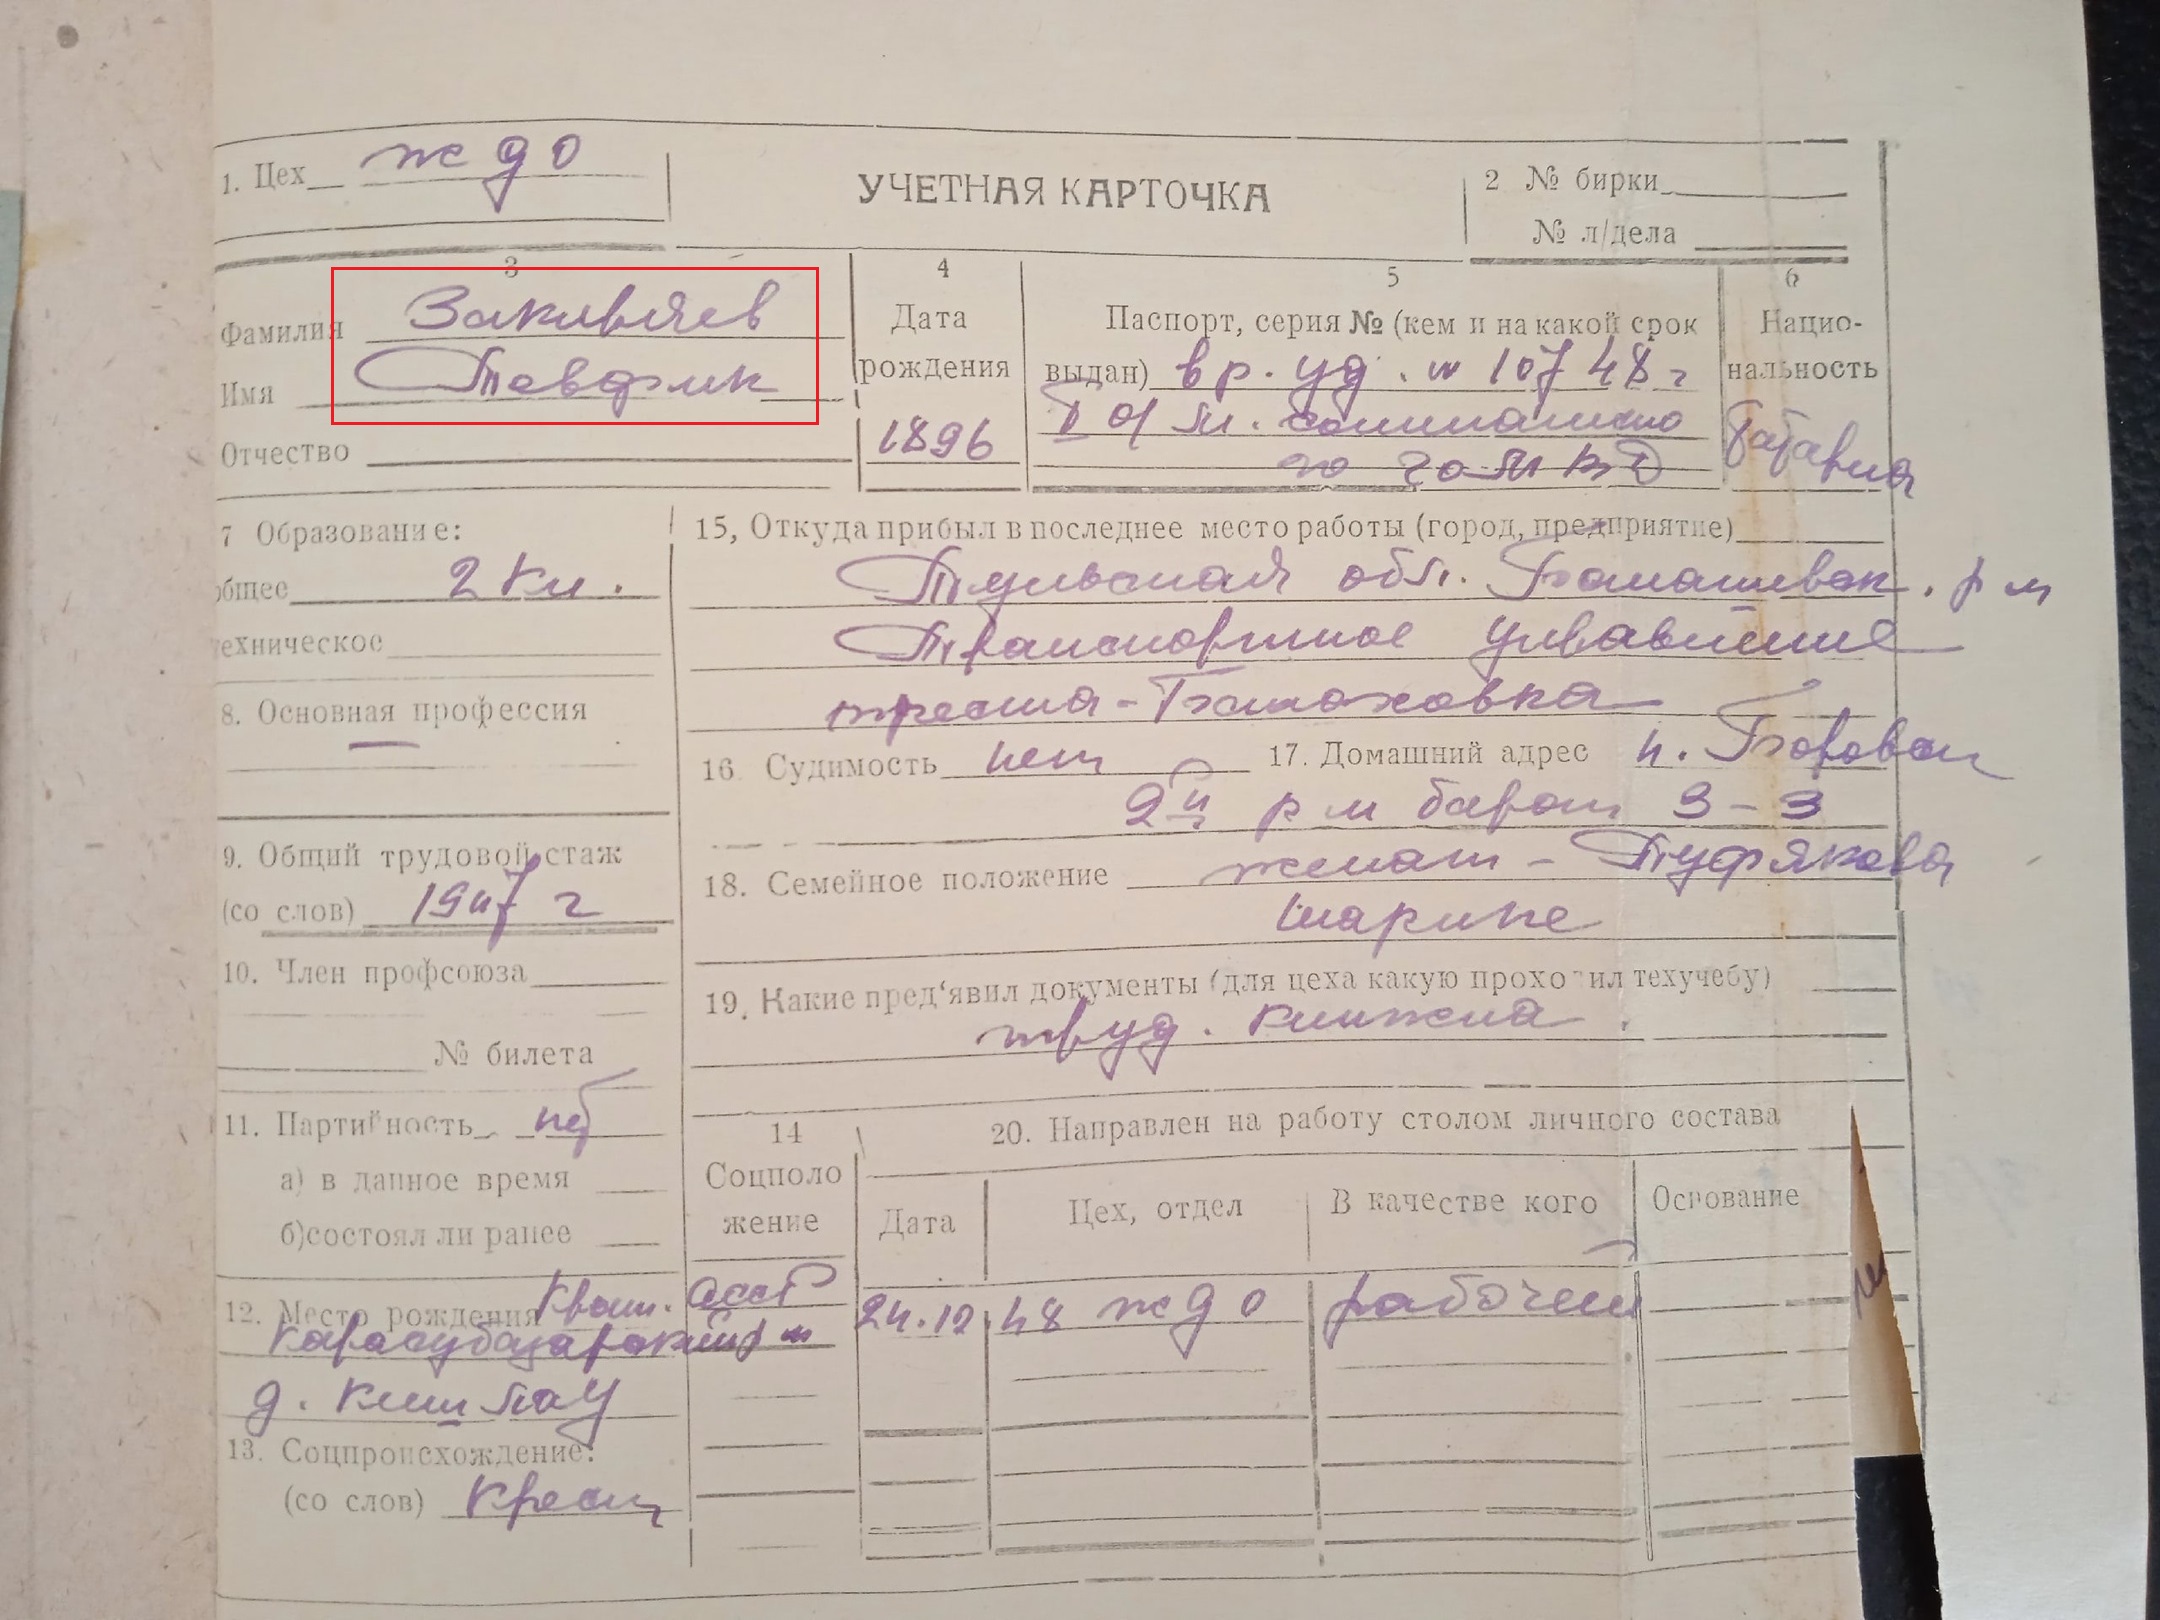 1. Цех ждо
УЧЕТНАЯ КАРТОЧКА
2 № бирки
№ л/дела
3
Фамилия Закирьяев
Имя Тевфик
Отчество
4
Дата
рождения
1896
5
Паспорт, серия № (кем и на какой срок
выдан) вр. уд. № 107 48 г
6
Нацио-
нальность
7 Образование:
общее 2 кл.
техническое
8. Основная профессия
9. Общий трудовой стаж
(со слов) 1947 г
10. Член профсоюза
№ билета
11. Партийность
а) в данное время
б)состоял ли ранее
12. Место рождения Крым. АССР
Карасубазарский р н
13. Соцпроисхождение:
(со слов) Крест
15, Откуда прибыл в последнее место работы (город, предприятие)
Тульская обл.
Транспортное управление
треста-
16. Судимость нет
17. Домашний адрес
барак 3-3
18. Семейное положение женат -
Шарипе
19. Какие пред'явил документы (для цеха какую проходил техучебу)
труд. книжка.
14
Соцполо
жение
20. Направлен на работу столом личного состава
Дата
Цех, отдел
В качестве кого
Основание
24.12.48 ждо рабочий